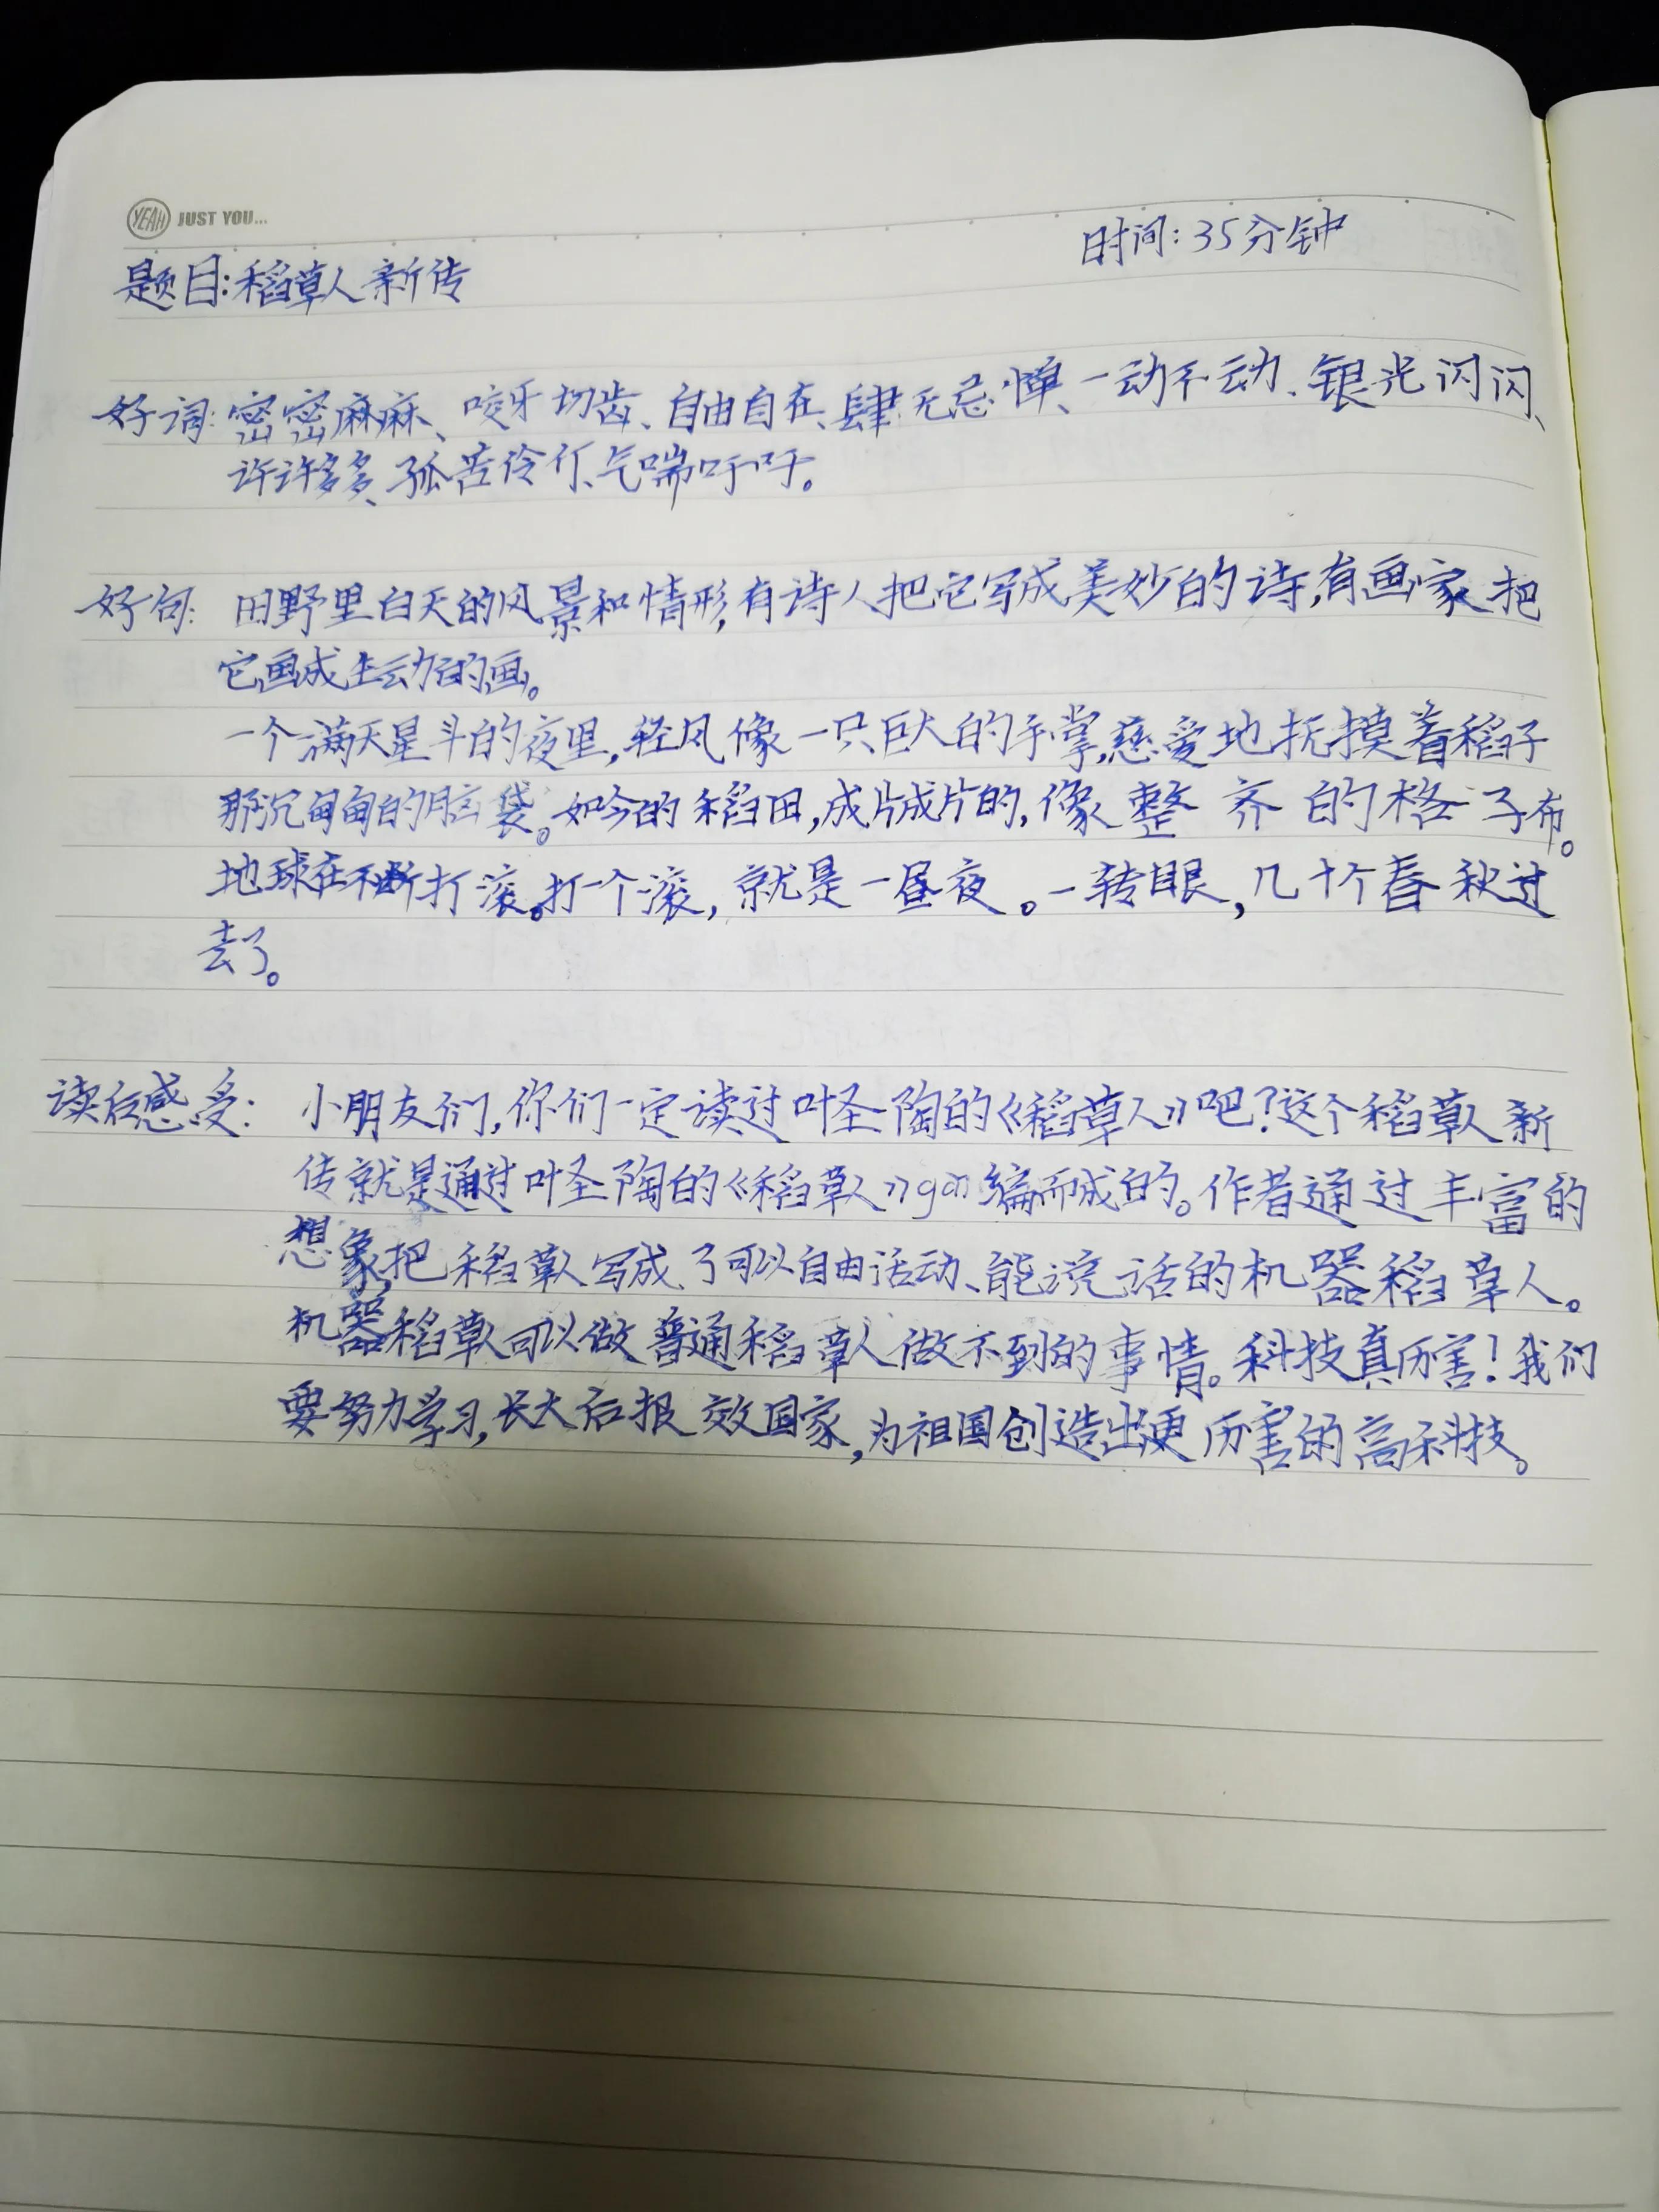 YEAH JUST YOU...
时间:35分钟
题目:稻草人新传
好词:密密麻麻、咬牙切齿、自由自在、肆无忌惮、一动不动、银光闪闪、
许许多多、孤苦伶仃、气喘吁吁。
好句:田野里白天的风景和情形,有诗人把它写成美妙的诗,有画家把
它画成生动的画。
一个满天星斗的夜里,轻风像一只巨大的手掌,慈爱地抚摸着稻子
那沉甸甸的脑袋。如今的稻田,成片成片的,像整齐的格子布。
地球在不断打滚。打一个滚,就是一昼夜。一转眼,几十个春秋过
去了。
读后感受:小朋友们,你们一定读过叶圣陶的《稻草人》吧?这个稻草人新
传就是通过叶圣陶的《稻草人》gǎi编而成的。作者通过丰富的
想象,把稻草人写成了可以自由活动、能说话的机器稻草人。
机器稻草人可以做普通稻草人做不到的事情。科技真厉害!我们
要努力学习,长大后报效国家,为祖国创造出更厉害的高科技。